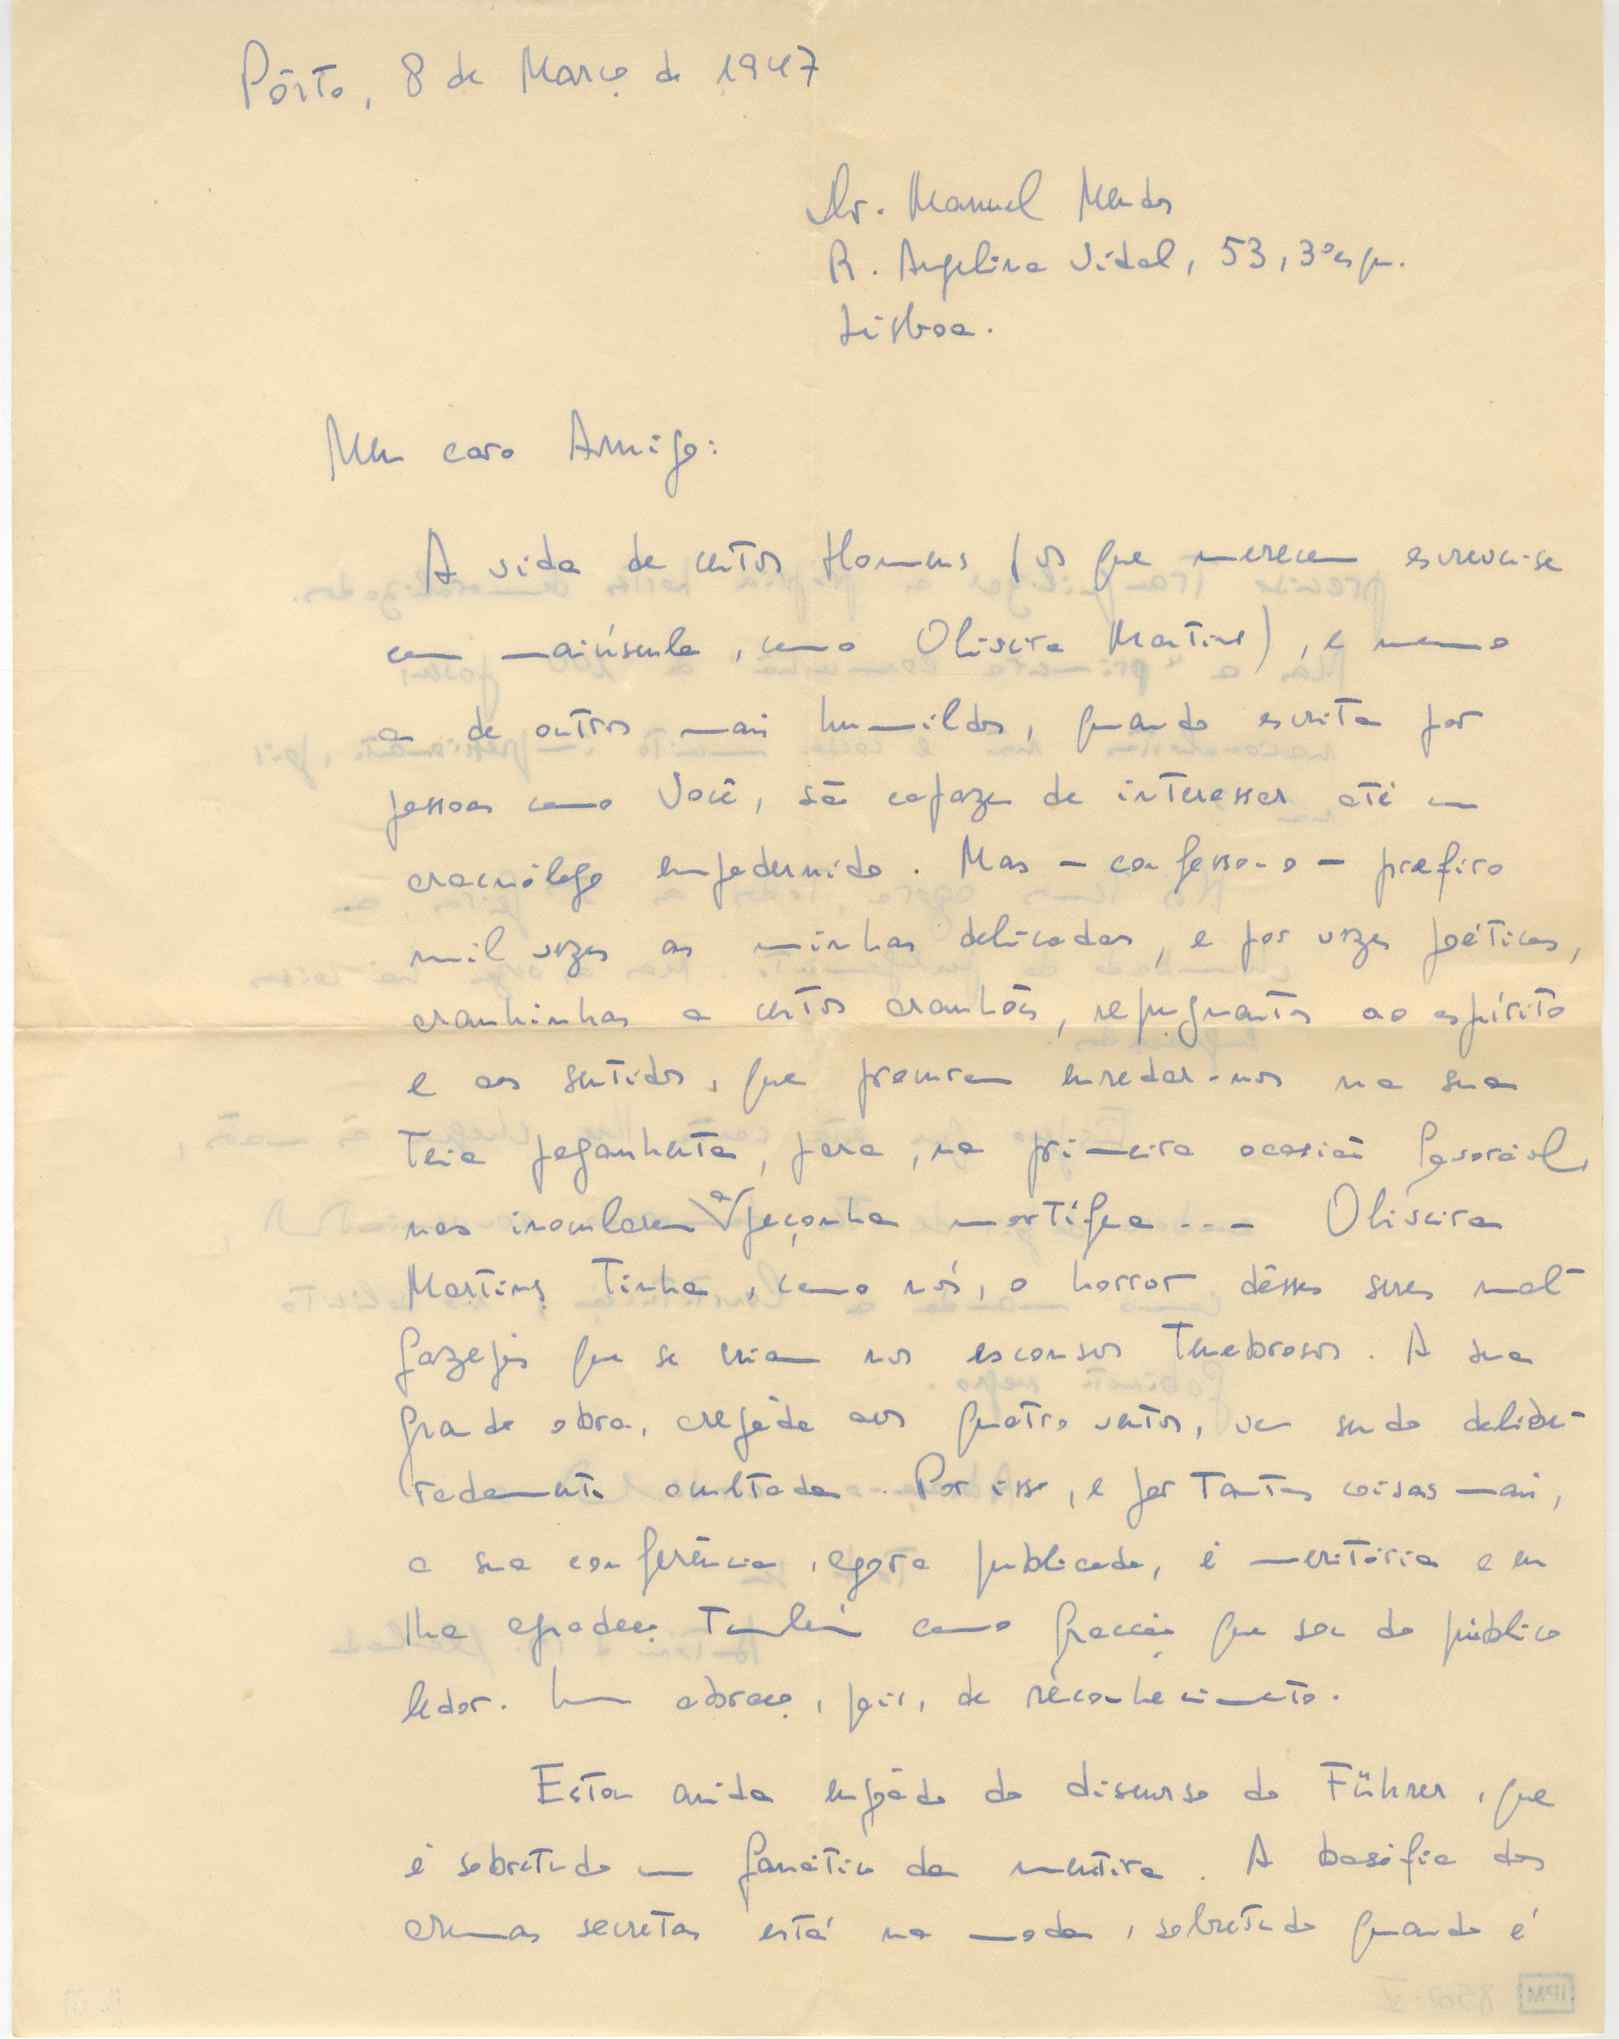 Pôrto, 8 de Março de 1947
Dr. Manuel Mendes
R. Angelina Vidal, 53, 3º esq.
Lisboa.
Meu caro Amigo:
A vida de certos Homens (os que merecem escrever-se
com maiúscula, como Oliveira Martins), e mesmo
a de outros mais humildes, quando escrita por
pessoas como Você, são capazes de interessar até um
aracnólogo empedernido. Mas – confesso-o – prefiro
mil vezes as minhas delicadas, e por vezes poéticas,
aranhinhas a certos aranhões, repugnantes ao espírito
e aos sentidos, que procuram enredar-nos na sua
teia peganhenta, para, na primeira ocasião favorável,
nos inocularem a peçonha mortífera... Oliveira
Martins tinha, como nós, o horror dêsses seres mal-
fazejos que se criam nos esconsos tenebrosos. A sua
grande obra, arejada aos quatro ventos, vem sendo delibe-
radamente ocultada. Por isso, e por tantas coisas mais,
a sua conferência, agora publicada, é meritória e eu
lha agradeço também como fracção que sou do público
ledor. Um abraço, pois, de reconhecimento.
Estou ainda engasgado do discurso do Führer, que
é sobretudo um fanático da mentira. A basófia das
armas secretas está na moda, sobretudo quando é
IPM